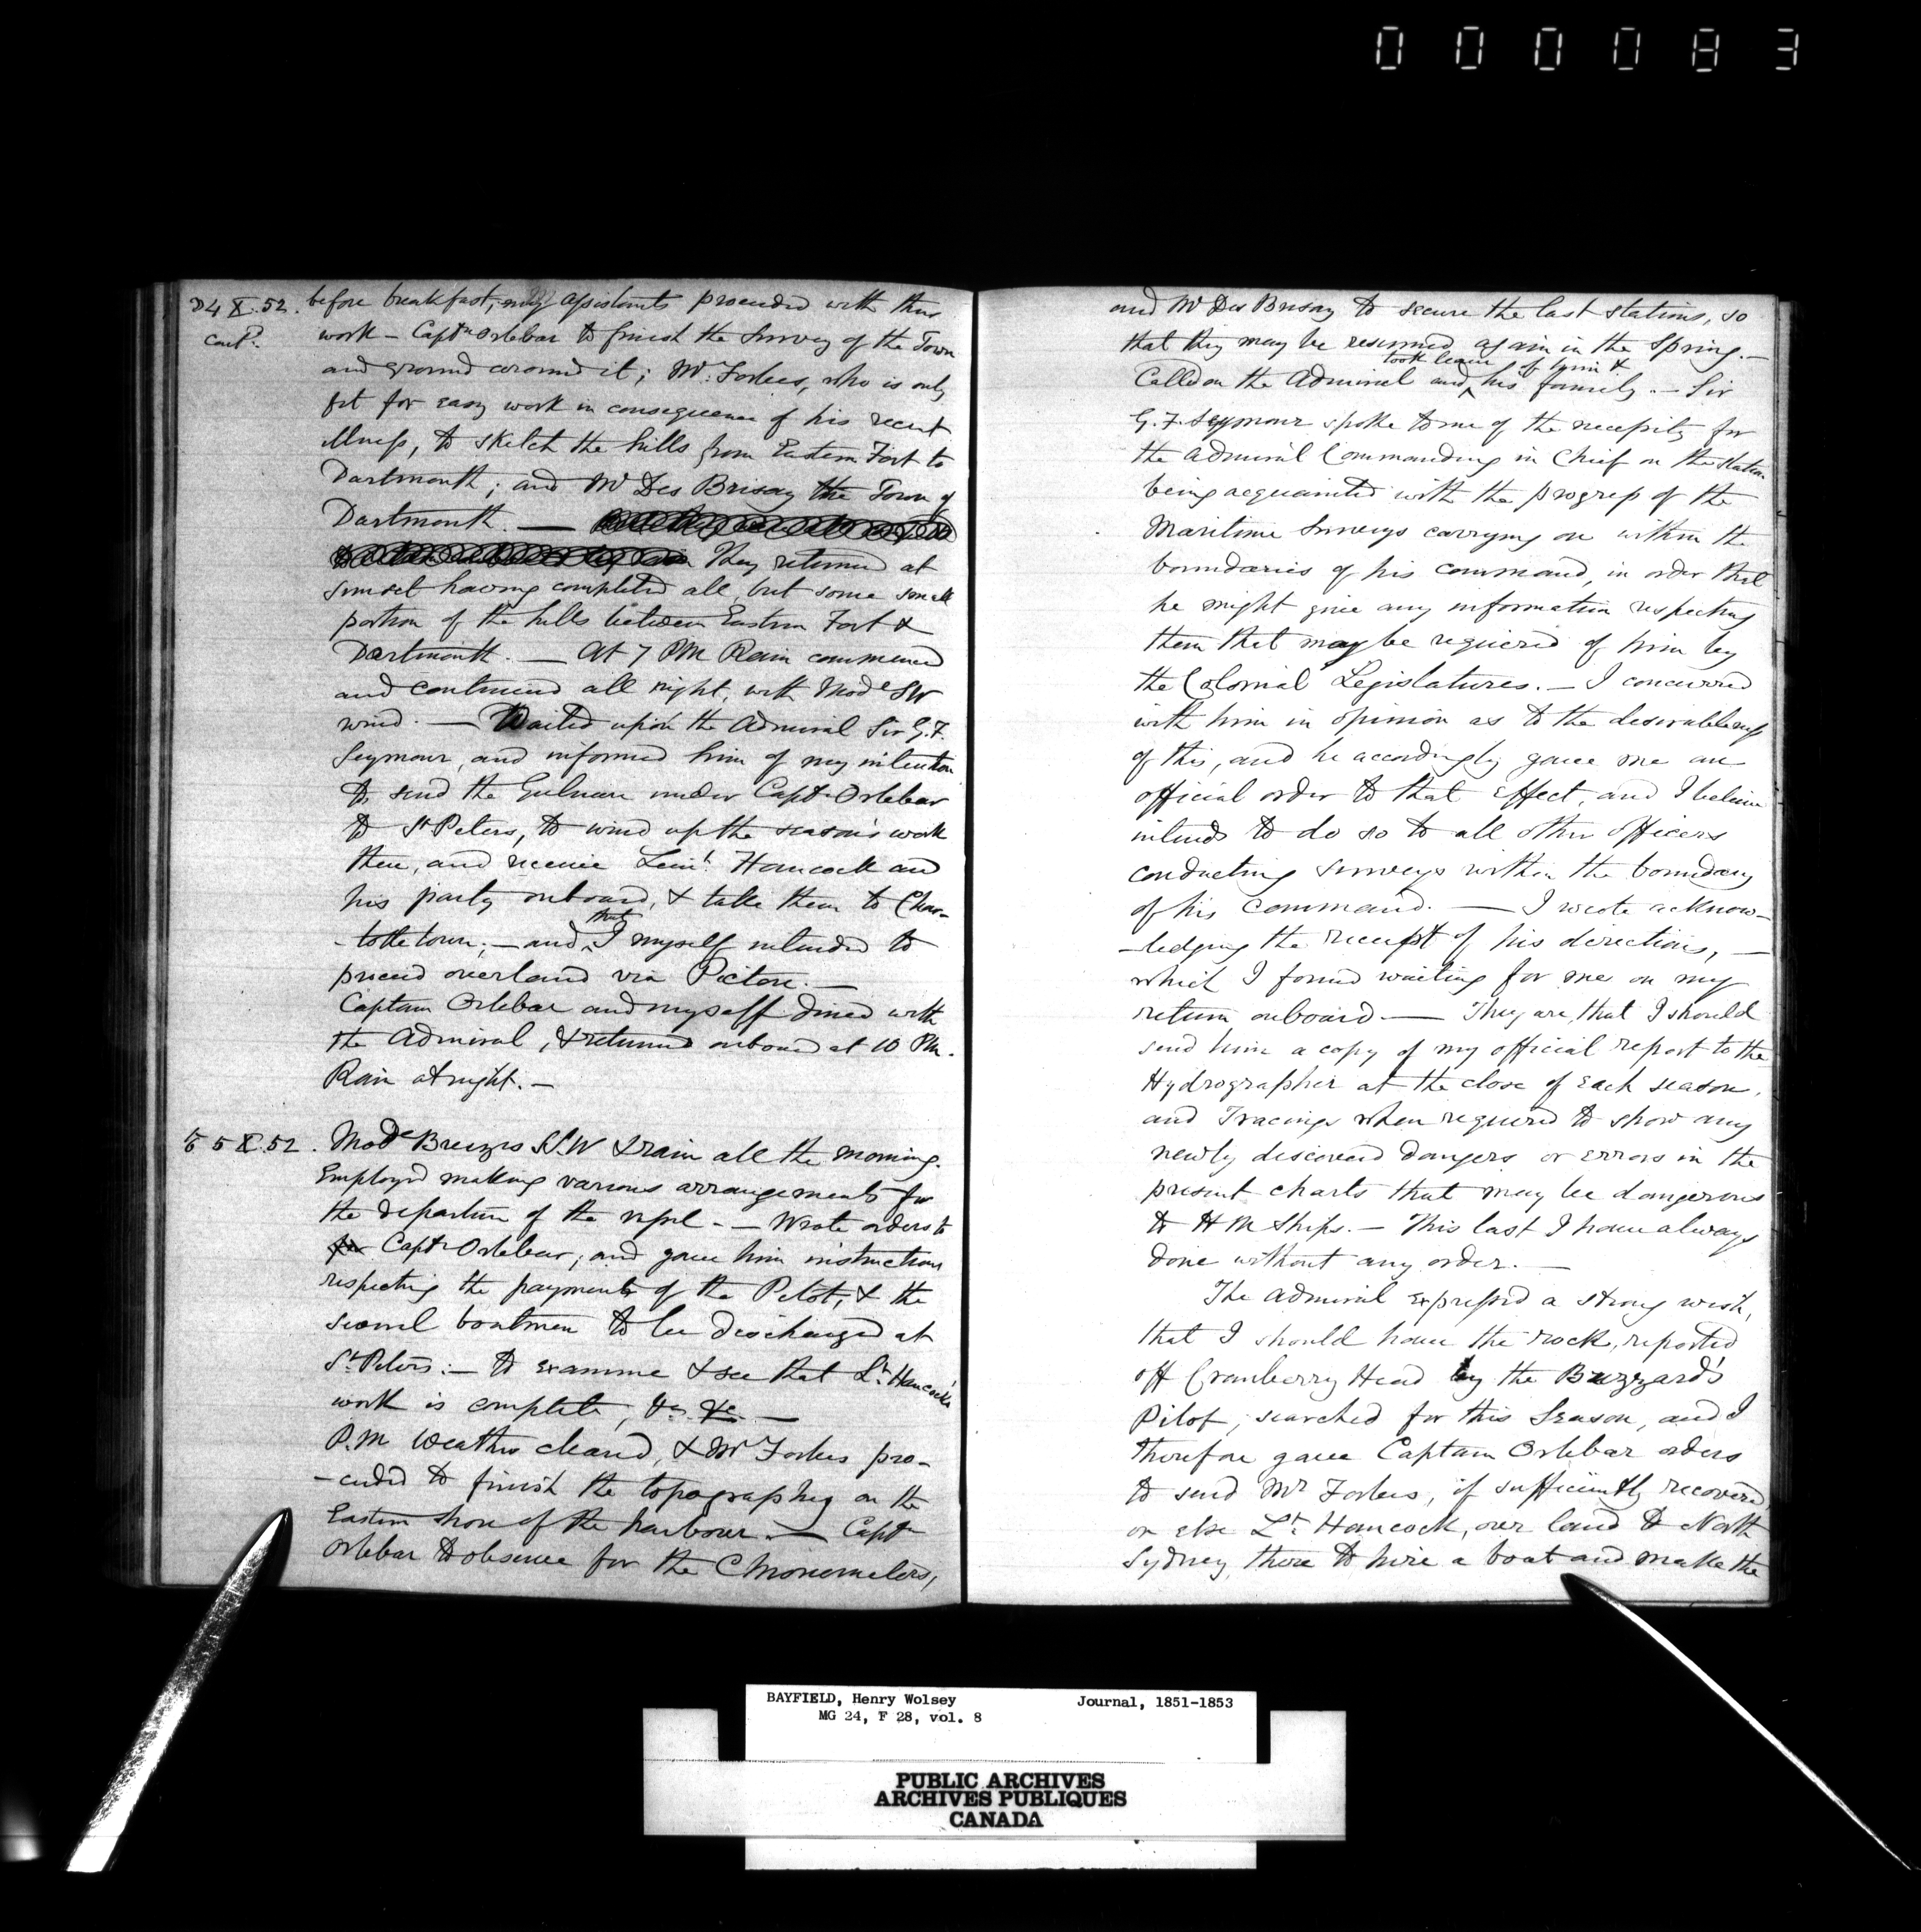 000083
D 4 X. 52. before breakfast, my assistants proceeded with their
contd. work – Captn Orlebar to finish the survey of the Town
and ground around it; Mr. Forbes, who is only
fit for easy work in consequence of his recent
illness, to sketch the hills from Eastern Fort to
Dartmouth; and Mr Des Brisay the Town of
Dartmouth. —
They returned at
sunset having completed all, but some small
portion of the hills between Eastern Fort &
Dartmouth. — At 7 PM Rain commenced
and continued all night, with Mode SW
wind. — Waited upon the Admiral Sir G. F.
Seymour, and informed him of my intention
to send the Gulnare under Captn Orlebar
to St Peters, to wind up the season's work
there, and receive Leiut. Hancock and
his party onboard, & take them to Char-
-lottetown; – and that I myself intended to
proceed overland via Pictou. —
Captain Orlebar and myself dined with
the Admiral, & returned onboard at 10 PM.
Rain at night. –
5 X. 52. Mode Breezes S.W & rain all the morning.
Employed making various arrangements for
the departure of the vessel. – Wrote orders to
for Captn Orlebar; and gave him instructions
respecting the payments of the Pilot, & the
several boatmen to be discharged at
St Peters: – to examine & see that Lt. Hancock's
work is complete, &c. &c. —
P.M Weather cleared, & Mr Forbes pro-
-ceeded to finish the topography on the
Eastern shore of the harbour. — Captn
Orlebar to observe for the Chronometers,
and Mr Des Brisay to secure the last stations, so
that they may be resumed again in the Spring. –
took leave of him &
Called on the Admiral and his family. – Sir
G. F. Seymour spoke to me of the necessity for
the Admiral Commanding in Chief on the station
being acquainted with the progress of the
Maritime Surveys carrying on within the
boundaries of his command, in order that
he might give any information respecting
them that may be required of him by
the Colonial Legislatures. – I concurred
with him in opinion as to the desirableness
of this, and he accordingly gave me an
official order to that Effect, and I believe
intends to do so to all other officers
conducting surveys within the boundary
of his command. — I wrote acknow-
-ledging the receipt of his directions, —
which I found waiting for me on my
return onboard — They are, that I should
send him a copy of my official report to the
Hydrographer at the close of each season,
and Tracings when required to show any
newly discovered dangers or errors in the
present charts that may be dangerous
to H M Ships. – This last I have always
done without any order. —
The Admiral expressed a strong wish,
that I should have the rock, reported
off Cranberry Head by the Buzzard's
Pilot, searched for this Season, and I
therefore gave Captain Orlebar orders
to send Mr Forbes, if sufficiently recovered,
or else Lt. Hancock, over land to North
Sydney, there to hire a boat and make the
BAYFIELD, Henry Wolsey Journal, 1851-1853
MG 24, F 28, vol. 8
PUBLIC ARCHIVES
ARCHIVES PUBLIQUES
CANADA